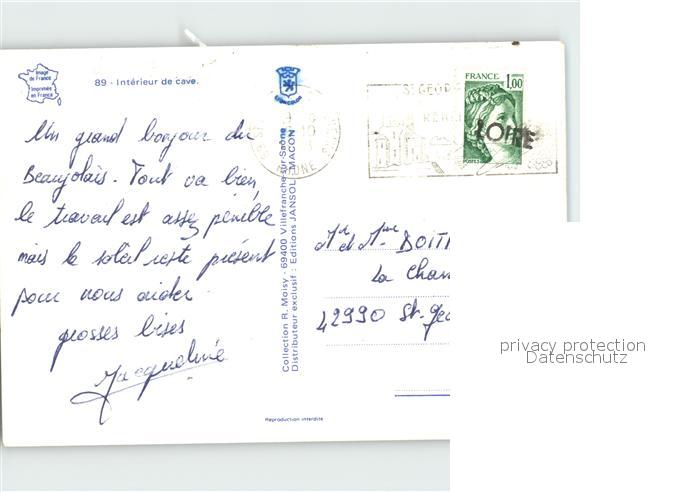 Image
de France
Imprimée
en France
89 - Intérieur de cave.
Un grand bonjour du
Beaujolais. Tout va bien,
le travail est assez pénible
mais le soleil reste présent
pour nous aider.
grosses bises
Jacqueline
Collection R. Moisy - 69400 Villefranche-sur-Saône
Distributeur exclusif : Editions JANSOL - MACON
Reproduction interdite
St GEORG
RHONE
FRANCE
1,00
POSTES
LOIRE
Mr et Mme BOIT
La Cham
42990 St. Geo
privacy protection
Datenschutz